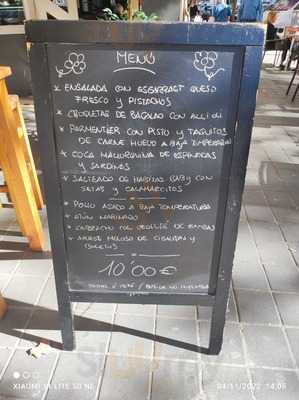 MENÚ
* ENSALADA CON ESGARRAET QUESO
FRESCO Y PISTACHOS
* CROQUETAS DE BACALAO CON ALLIOLI
* PARMENTIER CON PISTO Y TAQUITOS
DE CARNE HUEVO A BAJA TEMPERATURA
* COCA MALLORQUINA DE ESPINACAS
Y SARDINAS
* SALTEADO DE HABITAS BABY CON
SETAS Y CALAMARCITOS
* POLLO ASADO A BAJA TEMPERATURA
* ATÚN MARINADO
* CON DE
* ARROZ MELOSO DE
10'00€
XIAOMI 11 LITE 5G NE
04/11/2022 14:05